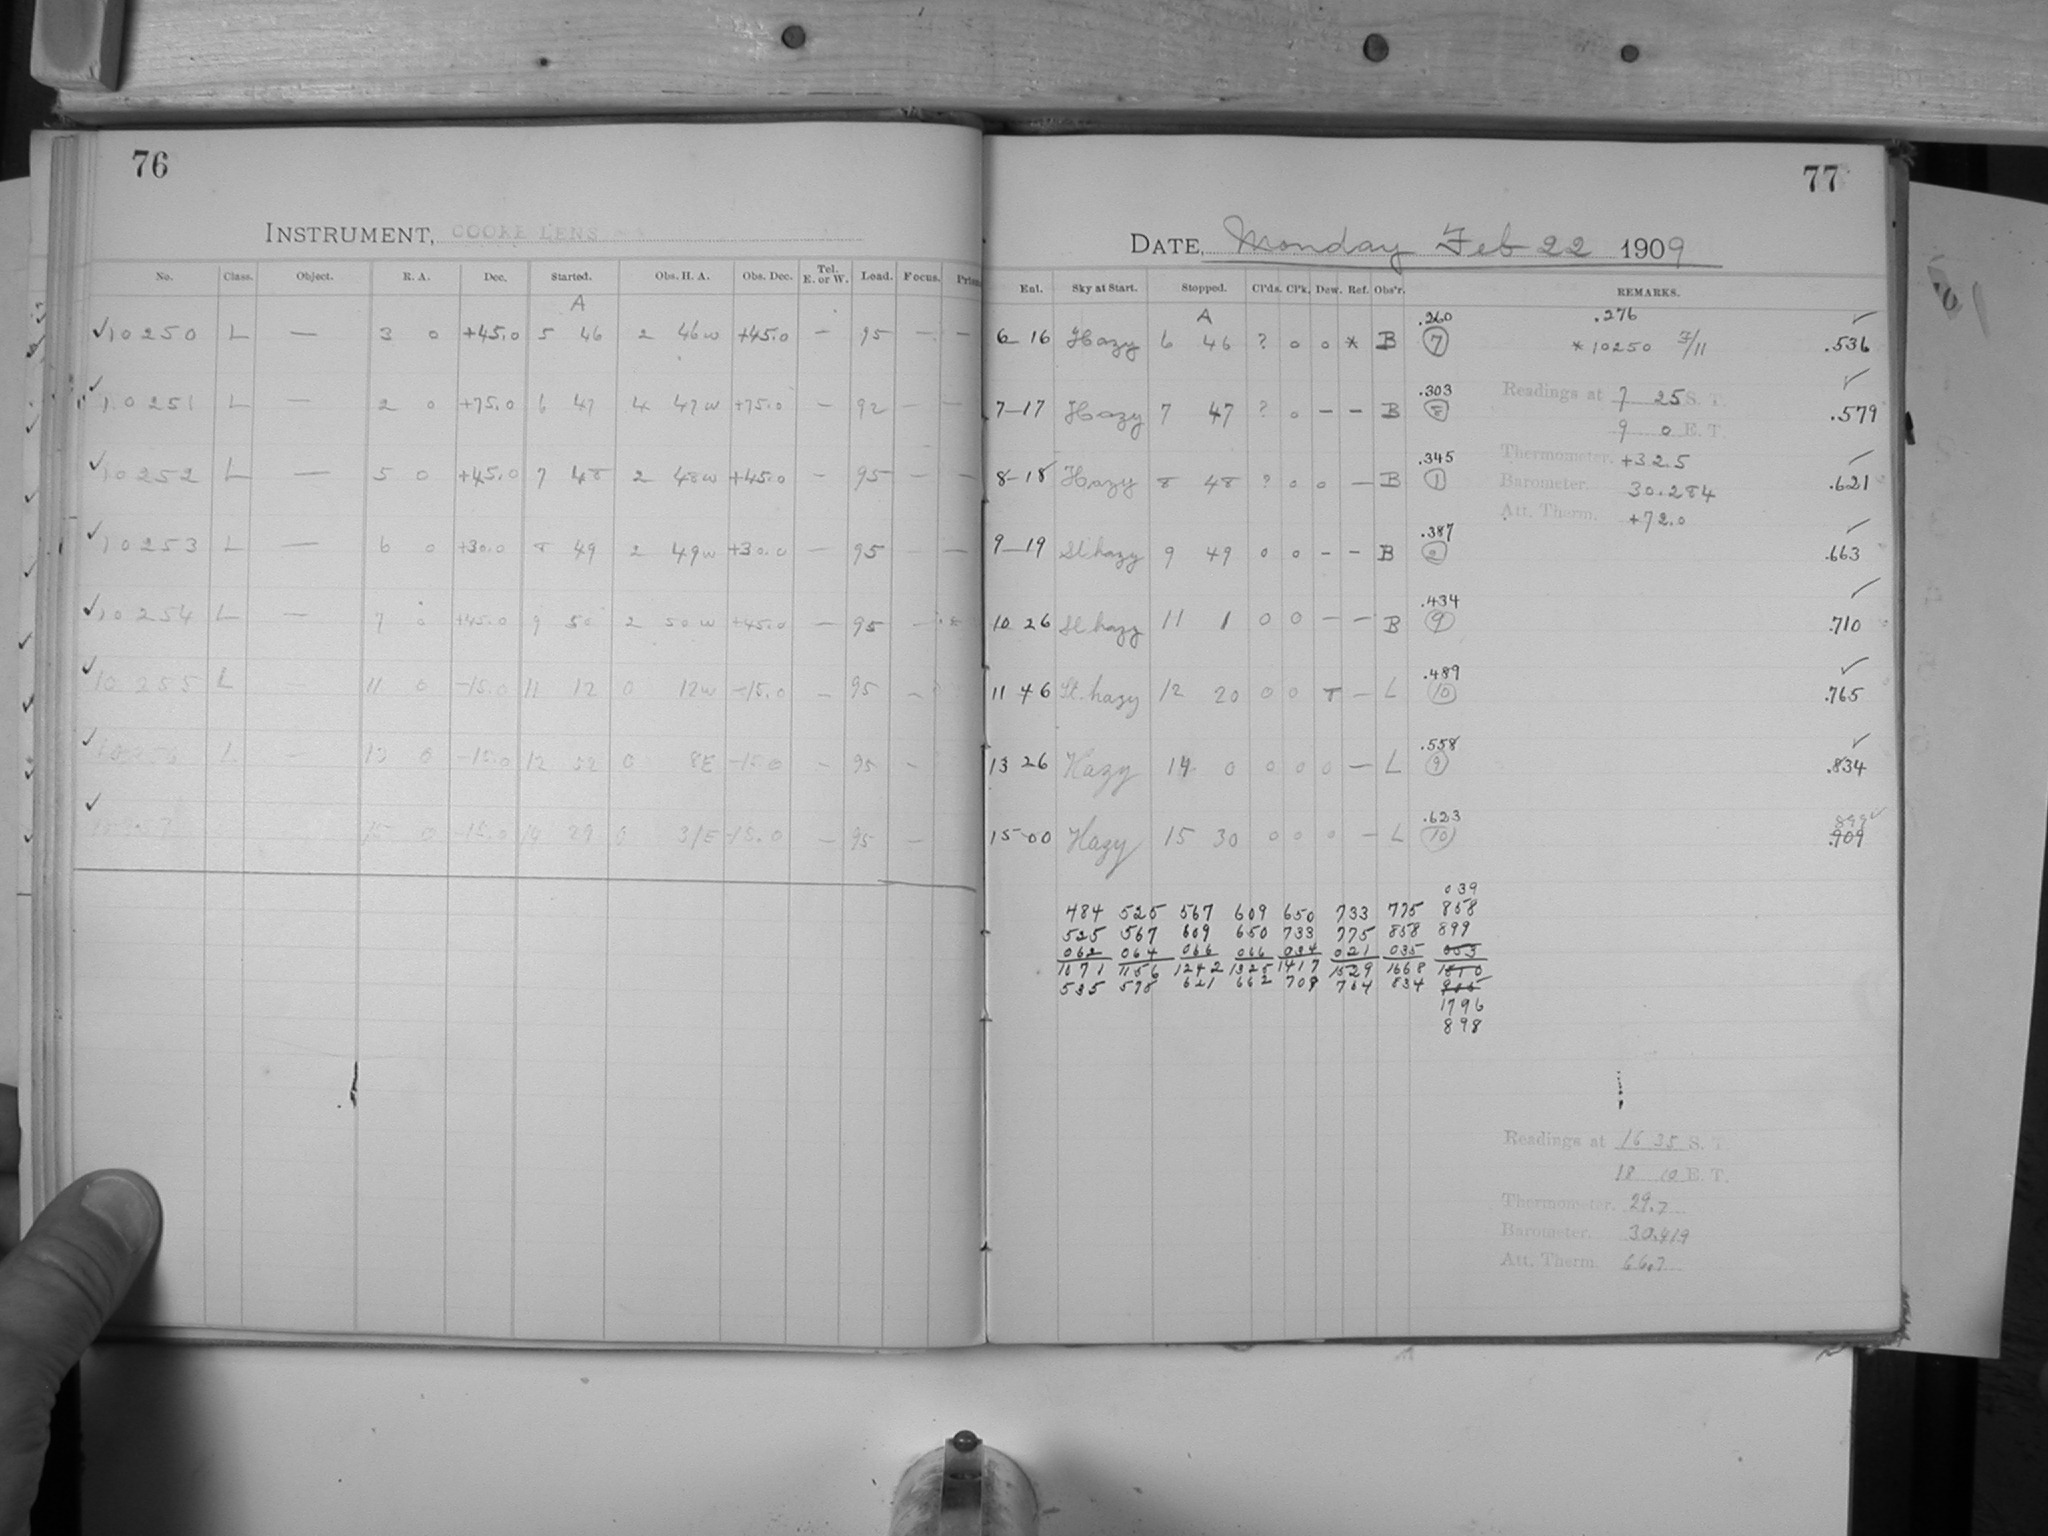 76
INSTRUMENT, COOKE LENS
No. Class. Object. R. A. Dec. Started. Obs. H. A. Obs. Dec. Tel. E. or W. Load. Focus. Prism
A
✓10250 L — 3 0 +45.0 5 46 2 46w +45.0 — 95 — —
✓10251 L — 2 0 +75.0 6 47 4 47w +75.0 — 92 — —
✓10252 L — 5 0 +45.0 7 48 2 48w +45.0 — 95 — —
✓10253 L — 6 0 +30.0 8 49 2 49w +30.0 — 95 — —
✓10254 L — 7 0 +45.0 9 50 2 50w +45.0 — 95 —
✓10255 L — 11 0 -15.0 11 12 0 12w -15.0 — 95 —
✓10256 L — 13 0 -15.0 12 52 0 8E -15.0 — 95 —
✓10257 15 0 -15.0 14 29 0 31E -15.0 — 95 —
77
DATE, Monday Feb 22 1909
Eal. Sky at Start. Stopped. Cl'ds. Cl'k. Dew. Ref. Obs'r. REMARKS.
A .260 .276 ✓
6 16 Hazy 6 46 ? 0 0 * B 7 * 10250 F/11 .536
.303 ✓
7—17 Hazy 7 47 ? 0 — — B 8 .579
Readings at 7 25 S. T.
9 0 E. T.
.345 ✓
8—18 Hazy 8 48 ? 0 0 — B 1 .621
Thermometer. +32.5
Barometer. 30.284
Att. Therm. +72.0
.387 ✓
9—19 Sl hazy 9 49 0 0 — — B 2 .663
.434 ✓
10 26 Sl hazy 11 1 0 0 — — B 9 .710
.489 ✓
11 46 Sl. hazy 12 20 0 0 T — L 10 .765
.558 ✓
13 26 Hazy 14 0 0 0 0 — L 9 .834
.623 899 ✓
15 00 Hazy 15 30 0 0 0 — L 10 .909
039
484 525 567 609 650 733 775 858
525 567 609 650 733 775 858 899
062 064 066 066 034 021 035 053
1071 1156 1242 1325 1417 1529 1668 1810
535 578 621 662 708 764 834 905
1796
898
Readings at 16 35 S. T.
18 10 E. T.
Thermometer. 29.7
Barometer. 30.419
Att. Therm. 66.7